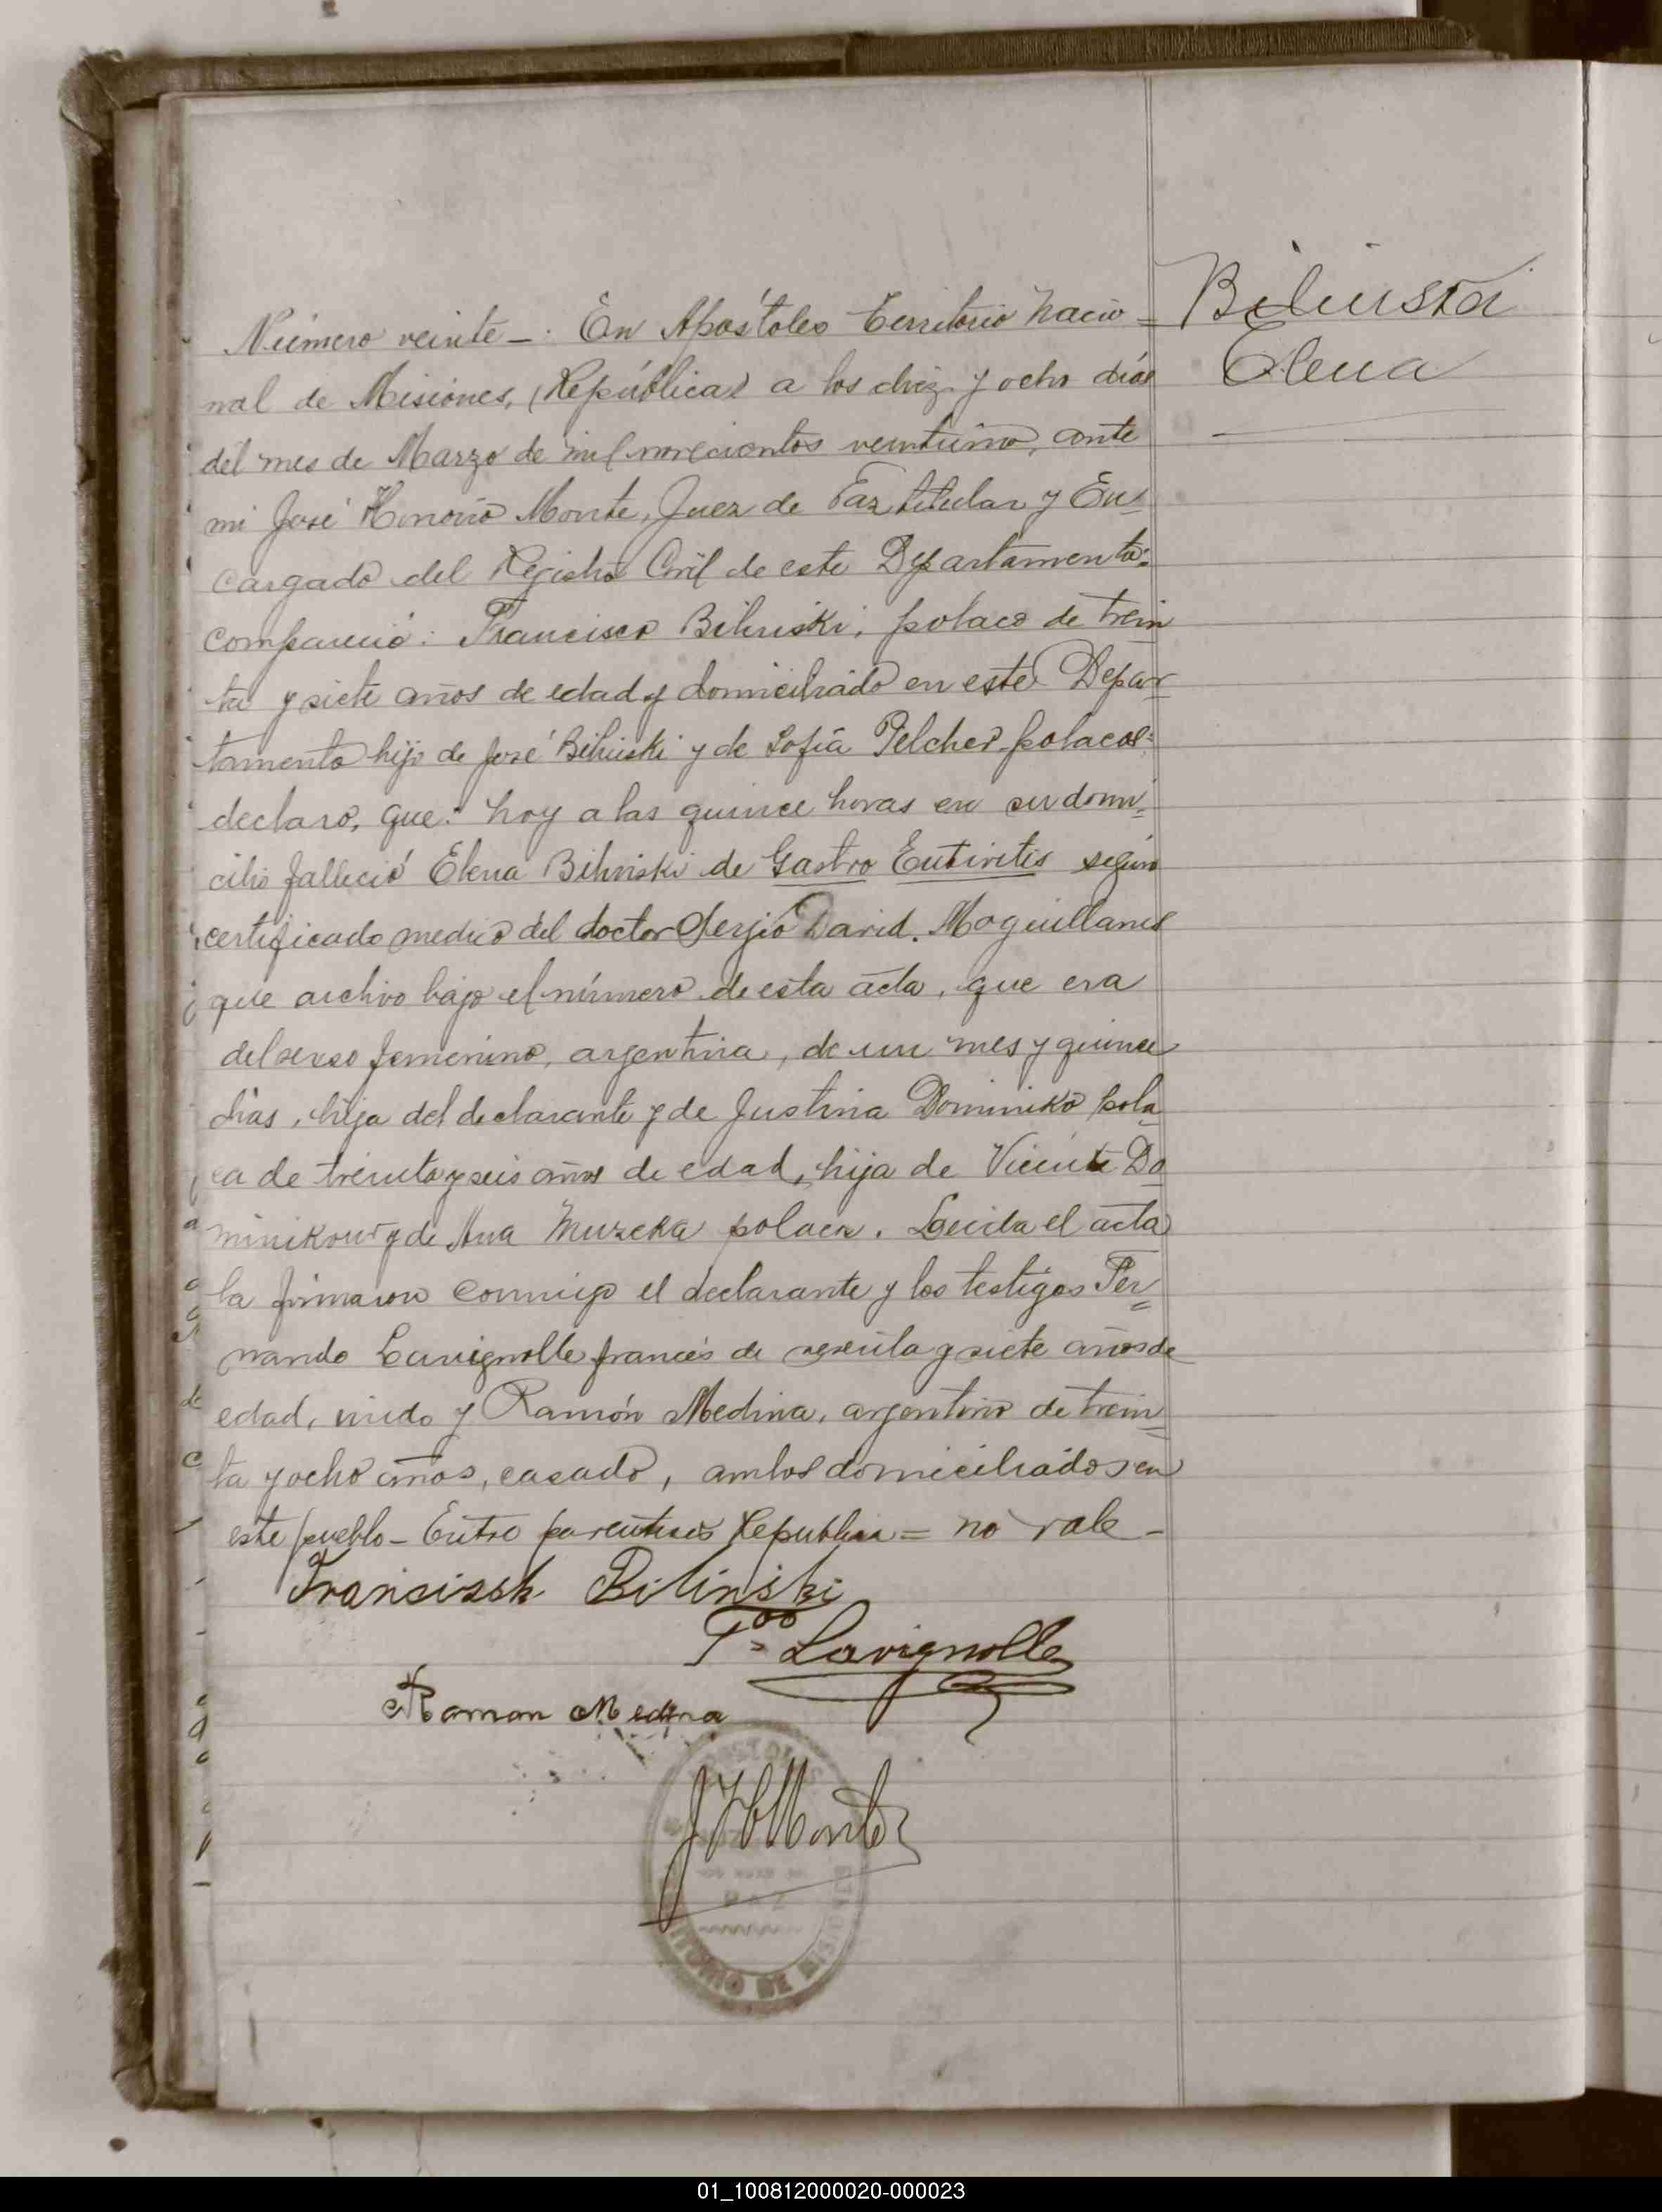 Bilinski
Elena
Número veinte —. En Apóstoles Territorio Nacio=
nal de Misiones, (República) a los diez y ocho días
del mes de Marzo de mil novecientos veintiuno, ante
mi José Honorio Monte, Juez de Paz titular y En=
cargado del Registro Civil de este Departamento:
compareció: Francisco Bilinski, polaco de trein
ta y siete años de edad y domiciliado en este Depar=
tamento hijo de José Bilinski y de Sofía Pelcher polacos:
declaro, que: hoy a las quince horas en su domi=
cilio falleció Elena Bilinski de Gastro Enteritis según
certificado medico del doctor Sergio David. Moguillanes
que archivo bajo el número de esta acta, que era
del sexo femenino, argentina, de un mes y quince
días, hija del declarante y de Justina Dominiko pola=
ca de treinta y seis años de edad, hija de Vicente Do=
minikow y de Ana Muzeka polaca. Leida el acta
la firmaron conmigo el declarante y los testigos Fer=
nando Lavignolle francés de sesenta y siete años de
edad, viudo y Ramón Medina, argentino de trein=
ta y ocho años, casado, ambos domiciliados en
este pueblo - Entre parentesis Republica = no vale -
Francissek Bilinski
Lavignolle
Ramon Medina
J H Monte
TORIO DE MISIONES
01_100812000020-000023